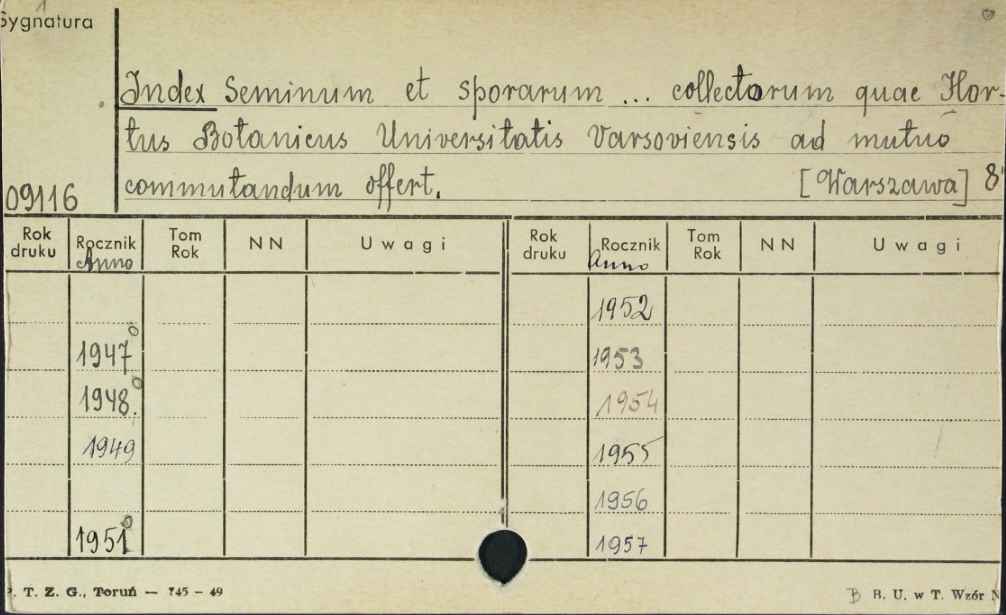 Sygnatura
Index Seminum et sporarum ... collectorum quae Hor-
tus Botanicus Universitatis Varsoviensis ad mutuo
commutandum offert. [Warszawa] 8°
09116
Rok druku Rocznik Anno Tom Rok NN Uwagi Rok druku Rocznik Anno Tom Rok NN Uwagi
1952
1947° 1953
1948.° 1954
1949 1955
1956
1951° 1957
P. T. Z. G., Toruń — 745 - 49 B B. U. w T. Wzór N